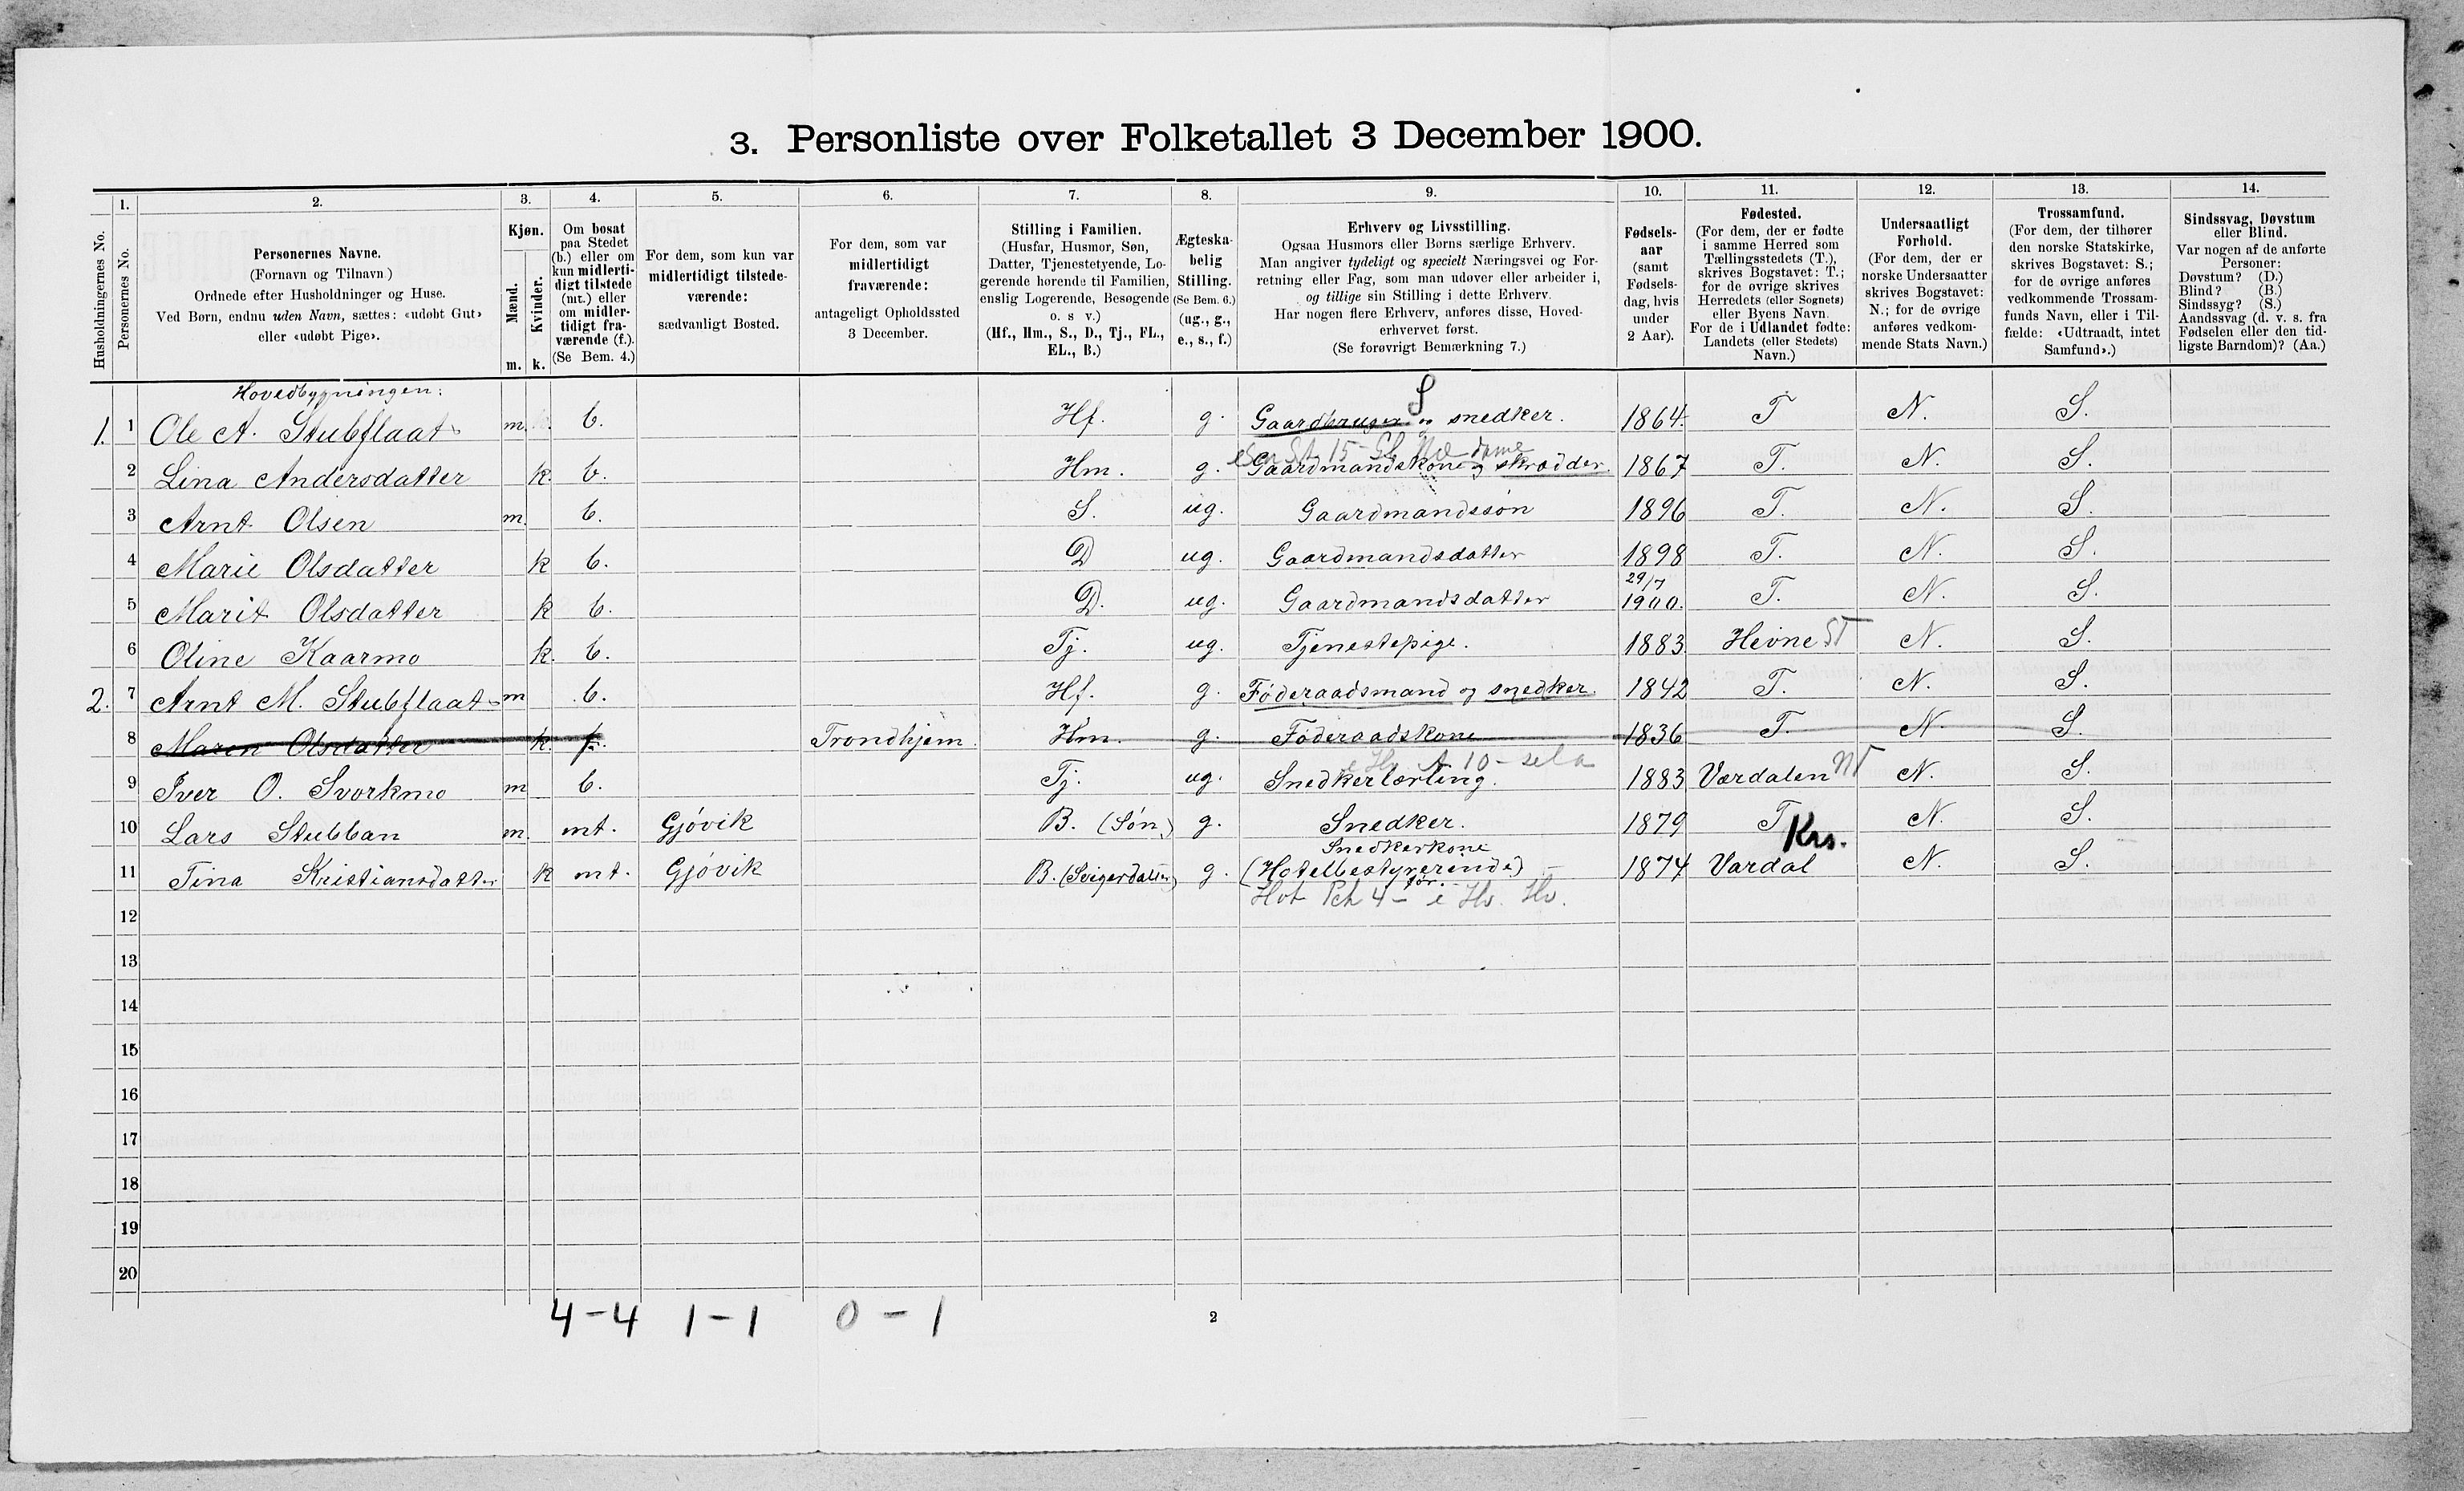 3. Personliste over Folketallet 3 December 1900.
1. 2. 3. 4. 5. 6. 7. 8. 9. 10. 11. 12. 13. 14.
Husholdningernes No.
Personernes No.
Personernes Navne.
(Fornavn og Tilnavn)
Ordnede efter Husholdninger og Huse.
Ved Børn, endnu uden Navn, sættes: «udøbt Gut»
eller «udøbt Pige».
Kjøn.
Mænd.
Kvinder.
m. k.
Om bosat
paa Stedet
(b.) eller om
kun midlerti-
digt tilstede
(mt.) eller
om midler-
tidigt fra-
værende (f.).
(Se Bem. 4.)
For dem, som kun var
midlertidigt tilstede-
værende:
sædvanligt Bosted.
For dem, som var
midlertidigt
fraværende:
antageligt Opholdssted
3 December.
Stilling i Familien.
(Husfar, Husmor, Søn,
Datter, Tjenestetyende, Lo-
gerende hørende til Familien,
enslig Logerende, Besøgende
o. s. v.)
(Hf., Hm., S., D., Tj., FL.,
EL., B.)
Ægteska-
belig
Stilling.
(Se Bem. 6.)
(ug., g.,
e., s., f.)
Erhverv og Livsstilling.
Ogsaa Husmors eller Børns særlige Erhverv.
Man angiver tydeligt og specielt Næringsvei og For-
retning eller Fag, som man udøver eller arbeider i,
og tillige sin Stilling i dette Erhverv.
Har nogen flere Erhverv, anføres disse, Hoved-
erhvervet først.
(Se forøvrigt Bemærkning 7.)
Fødsels-
aar
(samt
Fødsels-
dag, hvis
under
2 Aar).
Fødested.
(For dem, der er fødte
i samme Herred som
Tællingsstedets (T.),
skrives Bogstavet: T.;
for de øvrige skrives
Herredets (eller Sognets)
eller Byens Navn.
For de i Udlandet fødte:
Landets (eller Stedets)
Navn.)
Undersaatligt
Forhold.
(For dem, der er
norske Undersaatter
skrives Bogstavet:
N.; for de øvrige
anføres vedkom-
mende Stats Navn.)
Trossamfund.
(For dem, der tilhører
den norske Statskirke,
skrives Bogstavet: S.;
for de øvrige anføres
vedkommende Trossam-
funds Navn, eller i Til-
fælde: «Udtraadt, intet
Samfund».)
Sindssvag, Døvstum
eller Blind.
Var nogen af de anførte
Personer:
Døvstum? (D.)
Blind? (B.)
Sindssyg? (S.)
Aandssvag (d. v. s. fra
Fødselen eller den tid-
ligste Barndom)? (Aa.)
Hovedbygningen:
S
1. 1 Ole A. Stubflaat m. b. Hf. g. Gaardbruger og snedker. 1864. T N. S.
2 Lina Andersdatter k. b. Hm. g. Gaardmandskone og skrædder. 1867 T. N. S.
3 Arnt Olsen m. b. S. ug. Gaardmandssøn 1896 T. N. S.
4 Marie Olsdatter k b. D ug. Gaardmandsdatter 1898 T. N. S.
29/7
5 Marit Olsdatter k b. D. ug. Gaardmandsdatter 1900. T. N. S.
6 Oline Kaarmo k. b. Tj. ug. Tjenestepige. 1883 Hevne ST N. S.
2. 7 Arnt M. Stubflaat m b. Hf. g. Føderaadsmand og snedker. 1842 T. N. S.
8 Maren Olsdatter k. f. Trondhjem. Hm. g. Føderaadskone 1836 T. N S.
9 Iver O. Svorkmo m b. Tj. ug. Snedkerlærling. 1883 Værdalen NT N. S.
10 Lars Stubban m. mt. Gjøvik B. (Søn) g. Snedker. 1879 T N. S.
Krs.
Snedkerkone
11 Tina Kristiansdatter k mt. Gjøvik B. (Svigerdatter) g. (Hotelbestyrerinde) 1874 Vardal N. S.
12
13
14
15
16
17
18
19
20
4-4 1-1 0-1
2